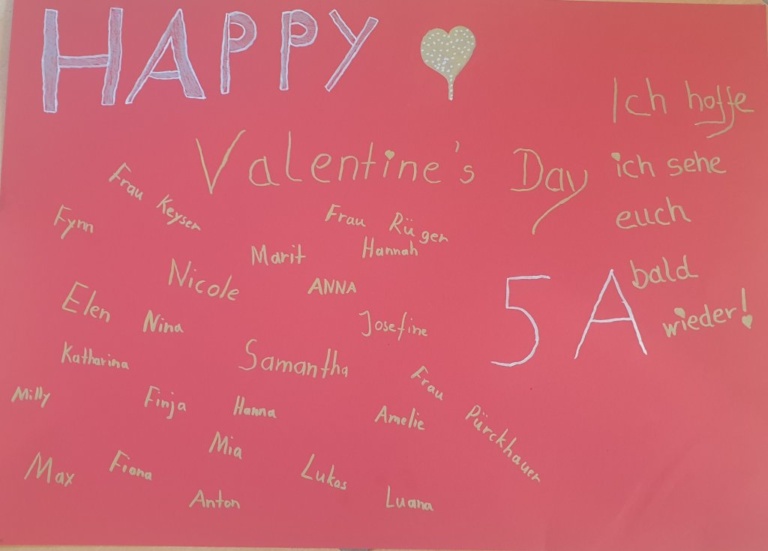 HAPPY
Valentine's Day
Ich hoffe
ich sehe
euch
bald
wieder!
5A
Frau Keyser
Frau Rüger
Fynn
Marit
Hannah
Nicole
ANNA
Elen
Nina
Josefine
Katharina
Samantha
Frau Pürckhauer
Milly
Finja
Hanna
Amelie
Mia
Max
Fiona
Lukas
Anton
Luana